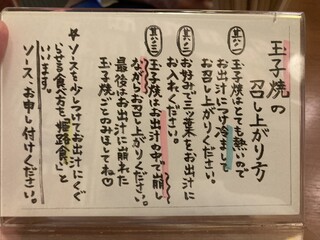 玉子焼の
召し上がり方
其の一 玉子焼はとても熱いので
お出汁につけ冷まして
お召し上がりください。
其の二 お好みで三ツ葉をお出汁に
お入れください。
其の三 玉子焼はお出汁の中で崩し
ながらお召し上がりください。
最後はお出汁に崩れた
玉子焼ごとのみほしてね♡
☆ソースを少しつけてお出汁にくぐ
らせる食べ方を、"姫路食い"と
いいます。
ソース、お申し付けください。